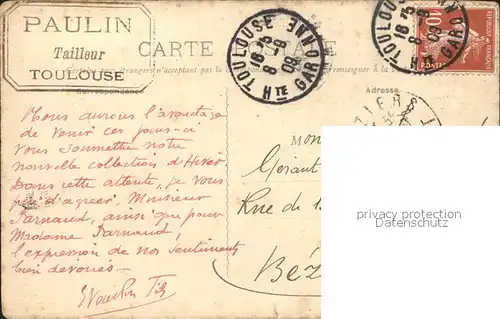 PAULIN
Tailleur
TOULOUSE
CARTE POSTALE
n'acceptent pas
renseigner
Correspondance
Adresse
TOULOUSE
Hte GARONNE
16 25
8 -9
09
TOULOUSE
Hte GARONNE
16 25
8 -9
09
10
POSTES
Nous aurons l'avantage
de venir ces jours-ci
vous soumettre notre
nouvelle collection d'Hiver.
Dans cette attente, je vous
prie d'agréer, Monsieur
Farnaud, ainsi que pour
Madame Farnaud,
l'expression de nos sentiments
bien dévoués.
Mon
Gérant
Rue de
Béz
privacy protection
Datenschutz